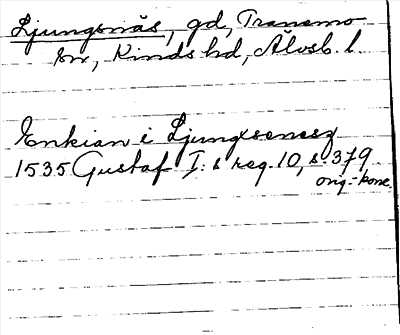 Ljungsnäs, gd, Tranemo
sn, Kinds hd, Älvsb. l.
Enkian i Ljungxsenesz
1535 Gustaf I:s reg. 10, s. 379
orig.-konc.